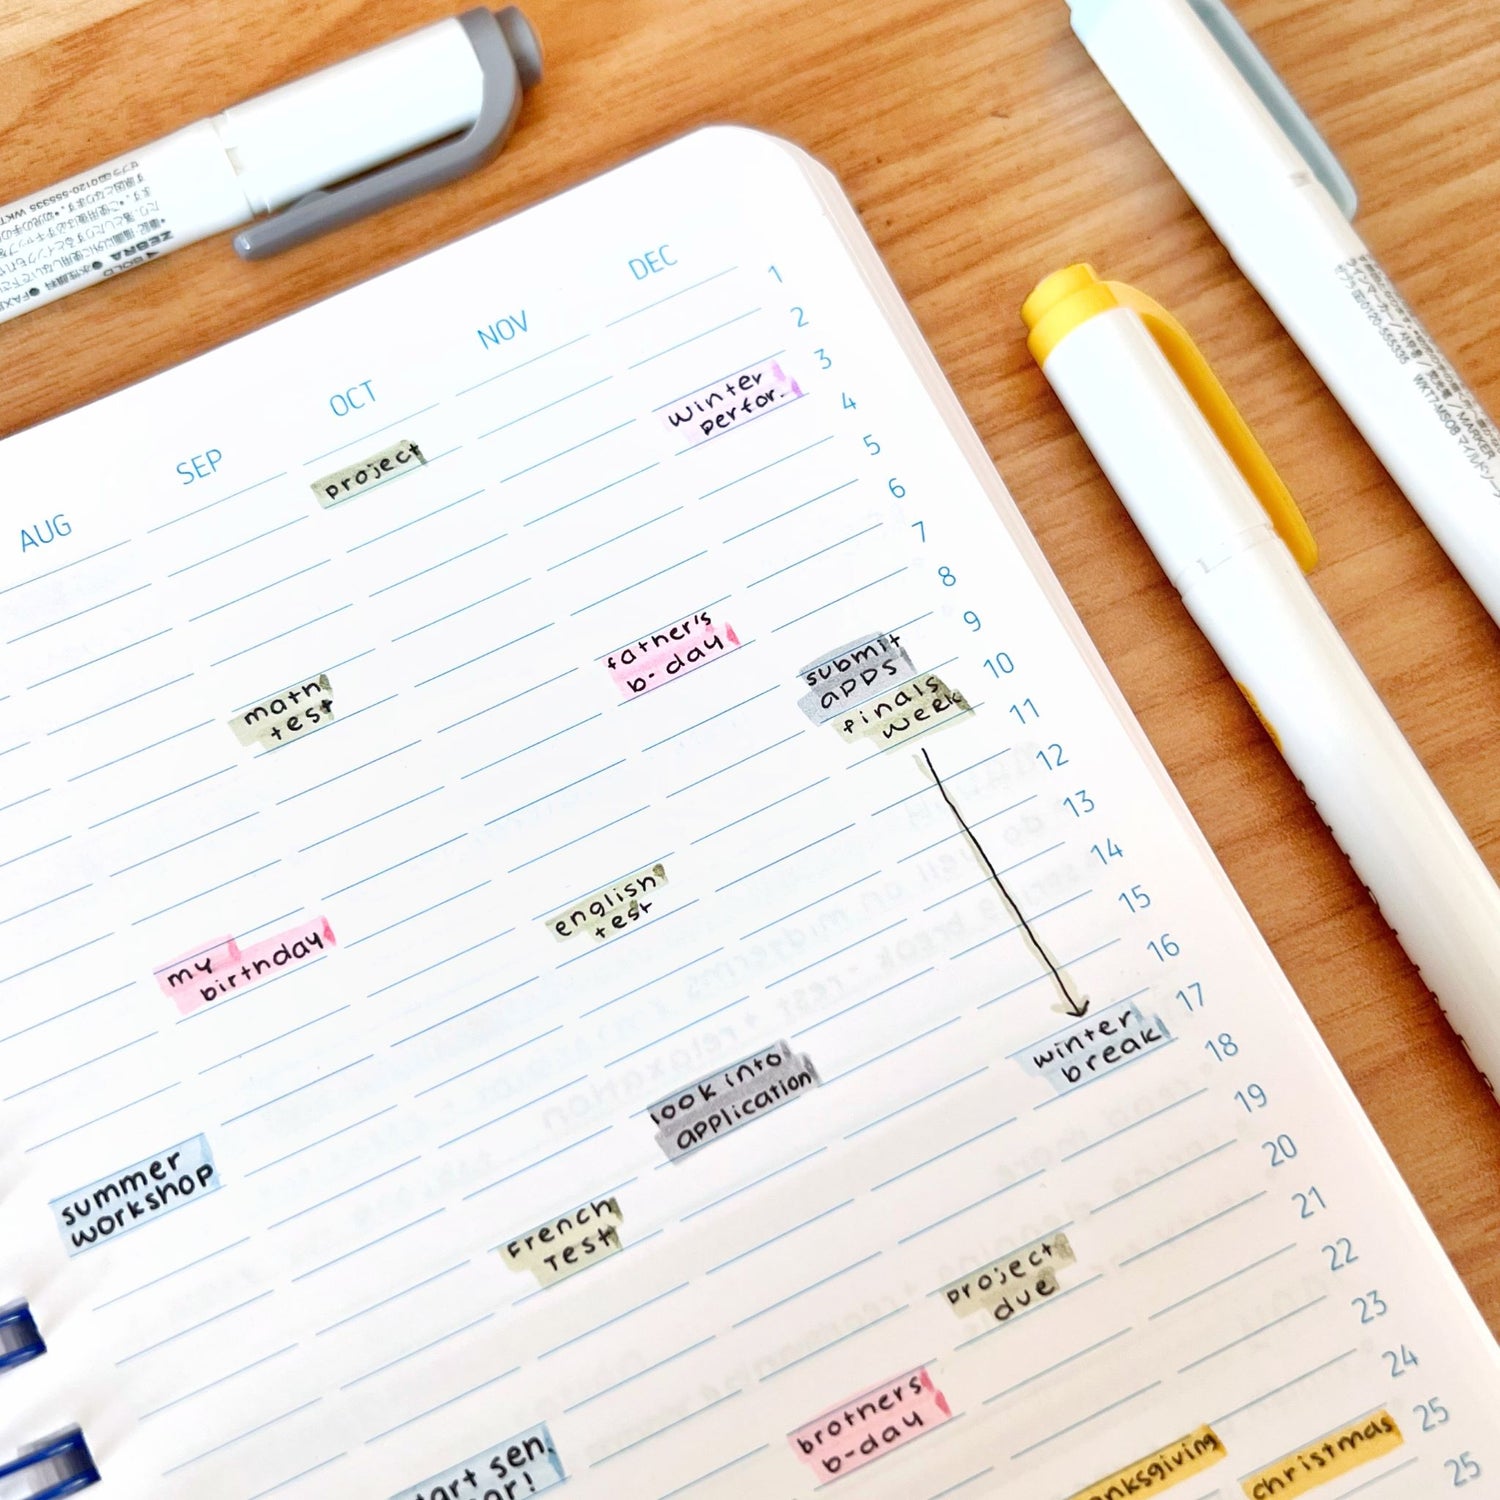 AUG
SEP
OCT
NOV
DEC
1
2
3
4
5
6
7
8
9
10
11
12
13
14
15
16
17
18
19
20
21
22
23
24
25
25
winter
perfor.
project
father's
b-day
submit
apps
finals
week
math
test
english
test
my
birthday
winter
break
look into
application
summer
workshop
french
test
project
due
brothers
b-day
art sen.
or!
nksgiving
christmas
ZEBRA
0120-555335
WKT7-MSOB
MARKER